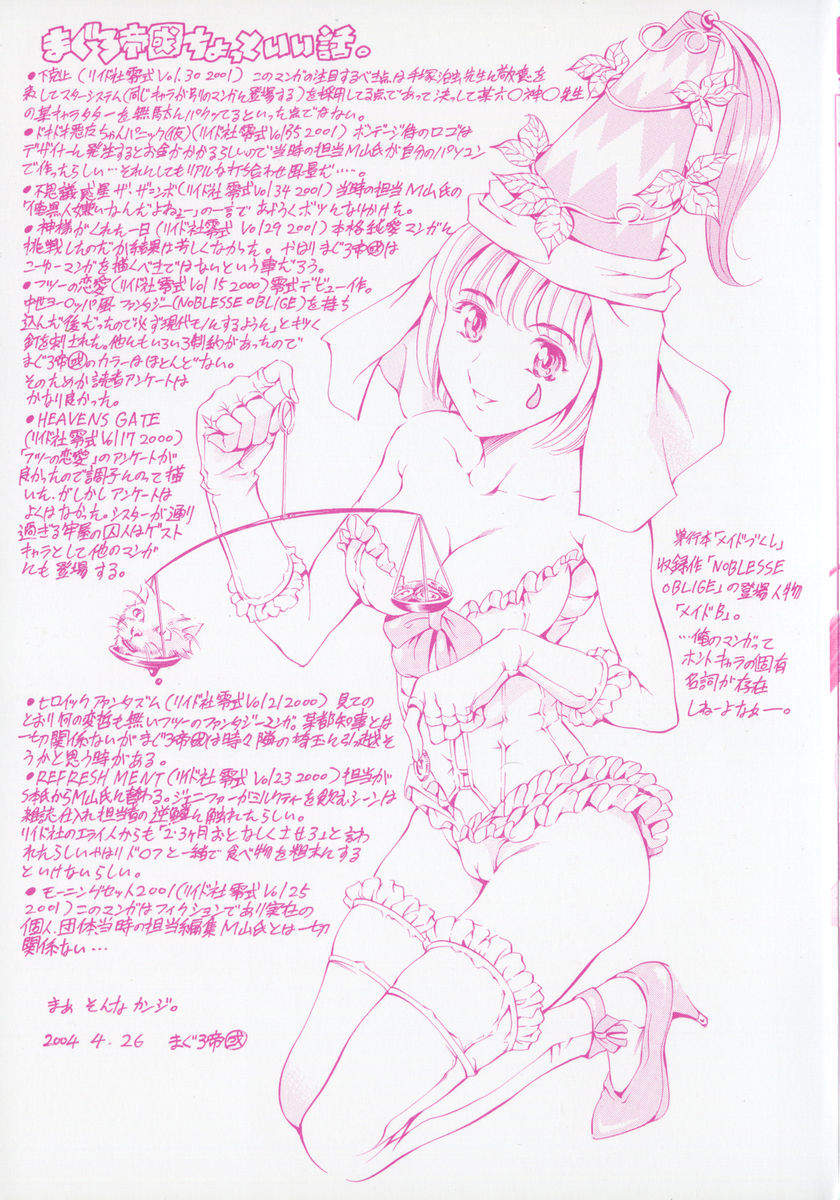 まぐろ帝國ちょっといい話。
●下剋上（リイド社零式Vol.30 2001）このマンガの注目するべき点は手塚治虫先生に敬意を
表してスターシステム（同じキャラが別のマンガに登場する）を採用してる点であって決して某六○神○先生
の某キャラクターを無断でパクってるといった点ではない。
パニック（仮）（リイド社零式Vol35 2001）ボンデージ侍のロゴは
デザイナーに発注するとお金がかかるらしいので当時の担当M山氏が自分のパソコン
で作ったらしい…それにしてもリアルな打合わせ風景だ…。
●不思議惑星ザ・ザンボ（リイド社零式Vol34 2001）当時の担当M山氏の
「俺異人嫌いなんだよねェー」の一言であやうくボツになりかけた。
●神様がくれた一日（リイド社零式Vol29 2001）本格純愛マンガに
挑戦したのだが結果は芳しくなかった。やはりまぐろ帝國は
ニーソーマンガを描くべきではないという事だろう。
●フツーの恋愛（リイド社零式Vol15 2000）零式デビュー作。
中世ヨーロッパ風ファンタジー（NOBLESSE OBLIGE）を持ち
込んだ後だったので「必ず現代モノにするように」とキツく
釘を刺された。他にもいろいろ制約があったので
まぐろ帝國のカラーはほとんどない。
そのためか読者アンケートは
かなり良かった。
●HEAVENS GATE
（リイド社零式Vol17 2000）
「フツーの恋愛」のアンケートが
良かったので調子にのって描
いた。がしかしアンケートは
よくはなかった。シスターが通り
過ぎる牢屋の囚人はゲスト
キャラとして他のマンガ
にも登場する。
単行本「メイドづくし」
収録作「NOBLESSE
OBLIGE」の登場人物
「メイドB」。
…俺のマンガって
ホントキャラの固有
名詞が存在
しねーよなァー。
●ヒロイックファンタズム（リイド社零式Vol21 2000）見ての
とおり何の変哲も無いフツーのファンタジーマンガ。某都知事とは
一切関係ないがまぐろ帝國は時々隣の埼玉に引っ越そ
うかと思う時がある。
●REFRESHMENT（リイド社零式Vol23 2000）担当が
S本氏からM山氏に替わる。ジェニファーがミルクティーを飲むシーンは
雑誌仕入れ担当者の逆鱗に触れたらしい。
リイド社のエライ人からも「2・3ヶ月おとなしくさせろ」と言わ
れたらしいやはりドロフと一緒で食べ物を粗末にする
といけないらしい。
●モーニングセット2001（リイド社零式Vol25
2001）このマンガはフィクションであり実在の
個人、団体当時の担当編集M山氏とは一切
関係ない…
まぁ そんな カンジ。
2004 4.26 まぐろ帝國